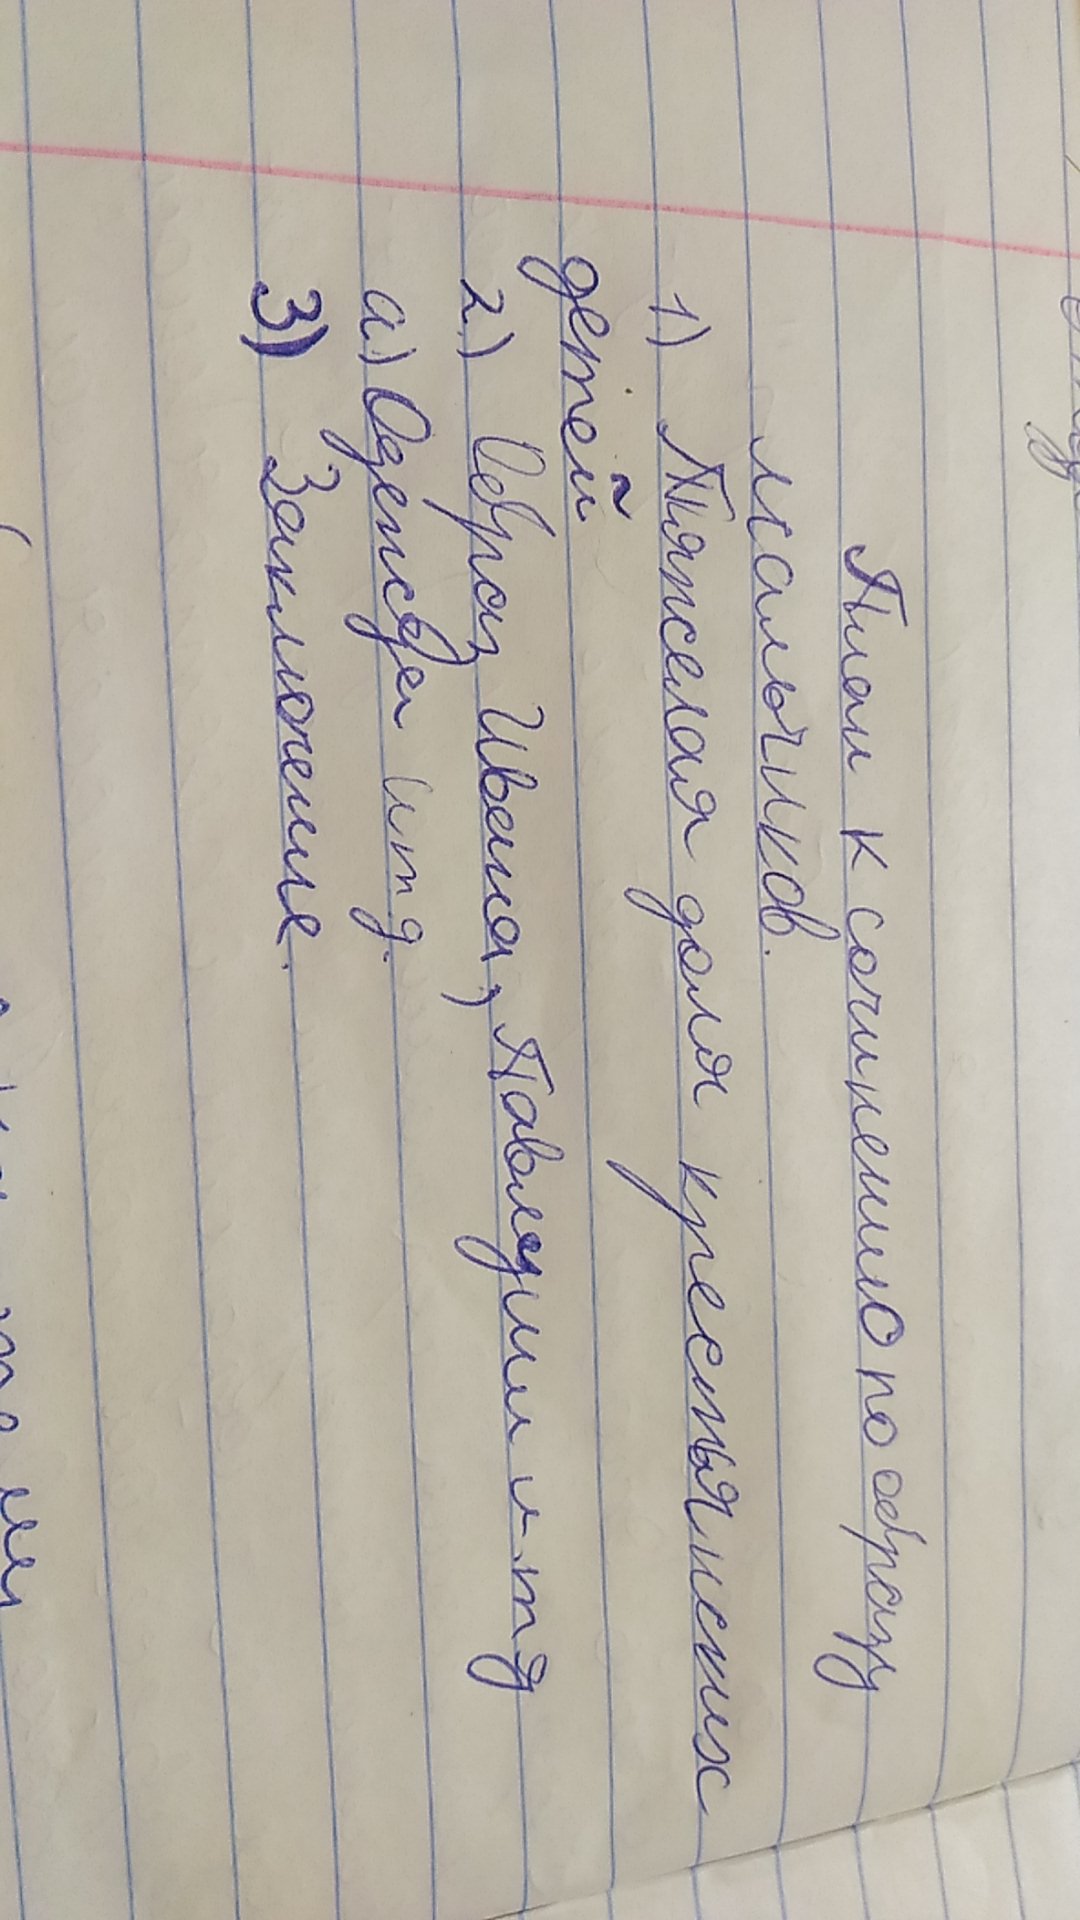 План к сочинению по образу
мальчиков.
1) Тяжелая доля крестьянских
детей
2) Образ Ивана, Павлуши и т д
а) Одежда и т д.
3) Заключение.